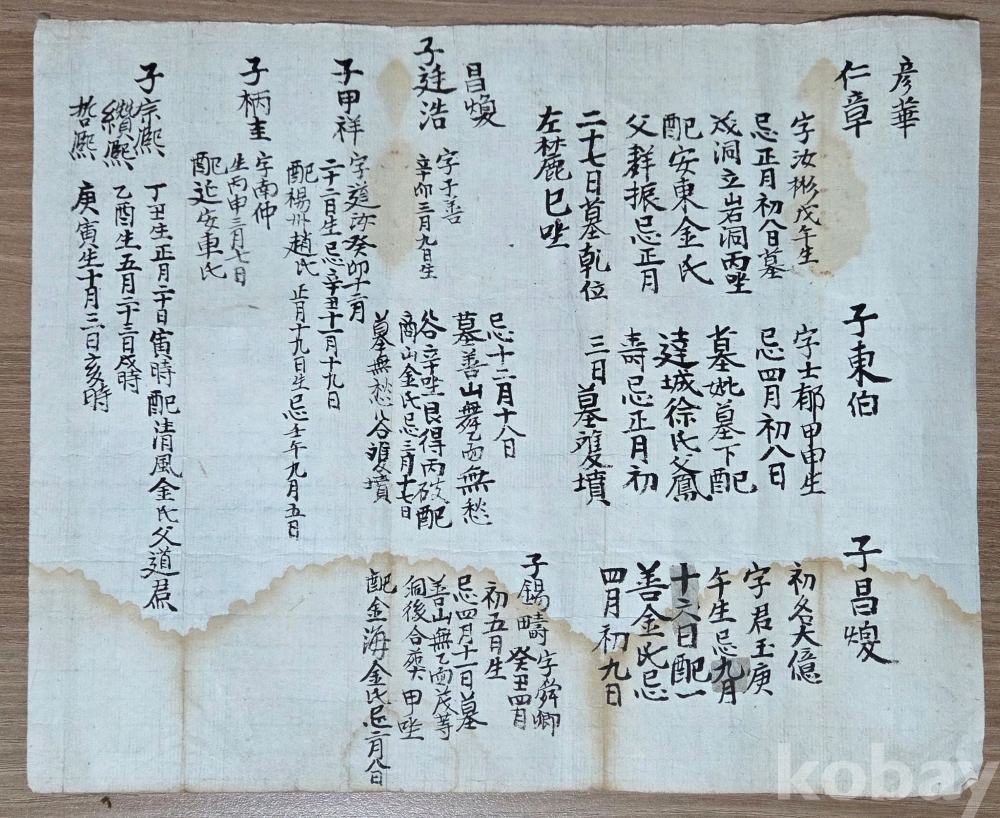 彦華
仁章
字汝彬戊午生
忌正月初八日墓
茂洞立岩洞丙坐
配安東金氏
父群振忌正月
二十七日墓乾位
左麓巳坐
子東伯
字士郁甲申生
忌四月初八日
墓妣墓下配
達城徐氏父鳳
壽忌正月初
三日墓雙墳
子昌煥
初名大億
字君玉庚
午生忌九月
十六日配一
善金氏忌
四月初九日
昌煥
子廷浩
字子善
辛卯三月九日生
忌十二月十八日
墓善山舞乙面無愁
谷辛坐艮得丙破配
商山金氏忌三月十七日
墓無愁谷雙墳
子錫疇
字舜卿
癸丑四月
初五日生
忌四月十一日墓
善山無乙面茂等
洞後合葬甲坐
配金海金氏忌二月八日
子甲祥
字道汝癸卯十二月
二十二日生忌辛丑十一月十九日
配楊州趙氏
正月十九日生忌壬午九月五日
子柄圭
字南仲
生丙申三月七日
配延安車氏
子宗熙
丁丑生正月二十日寅時配清風金氏父道熏
纘熙
乙酉生五月二十三日戌時
哲熙
庚寅生十月三日亥時
kobay